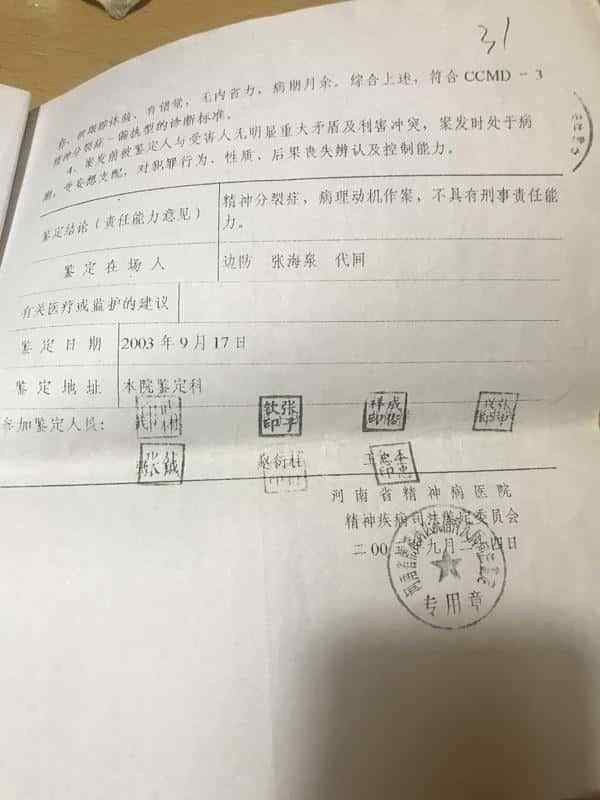 31
、被跟踪体验、有错觉，无内省力，病期月余。综合上述，符合CCMD-3
精神分裂症-偏执型的诊断标准。
4、案发前被鉴定人与受害人无明显重大矛盾及利害冲突，案发时处于病
期，受妄想支配，对犯罪行为、性质、后果丧失辨认及控制能力。
鉴定结论（责任能力意见） 精神分裂症，病理动机作案，不具有刑事责任能
力。
鉴定在场人 边防 张海泉 代同
有关医疗或监护的建议
鉴定日期 2003年9月17日
鉴定地址 本院鉴定科
参加鉴定人员：
河南省精神病医院
精神疾病司法鉴定委员会
二00 九月二 四日
专用章